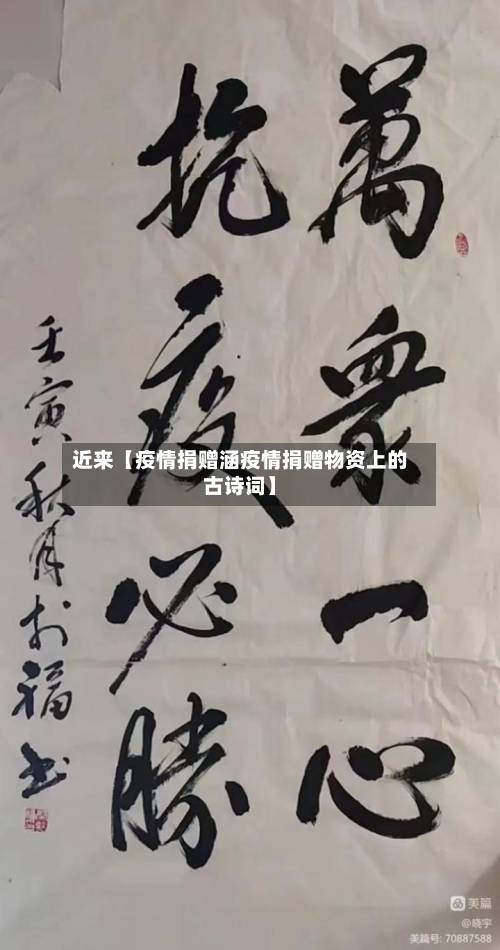 萬衆一心
抗疫必勝
壬寅秋月於福書
近来【疫情捐赠涵疫情捐赠物资上的
古诗词】
美篇
@晓宇
美篇号: 70887588